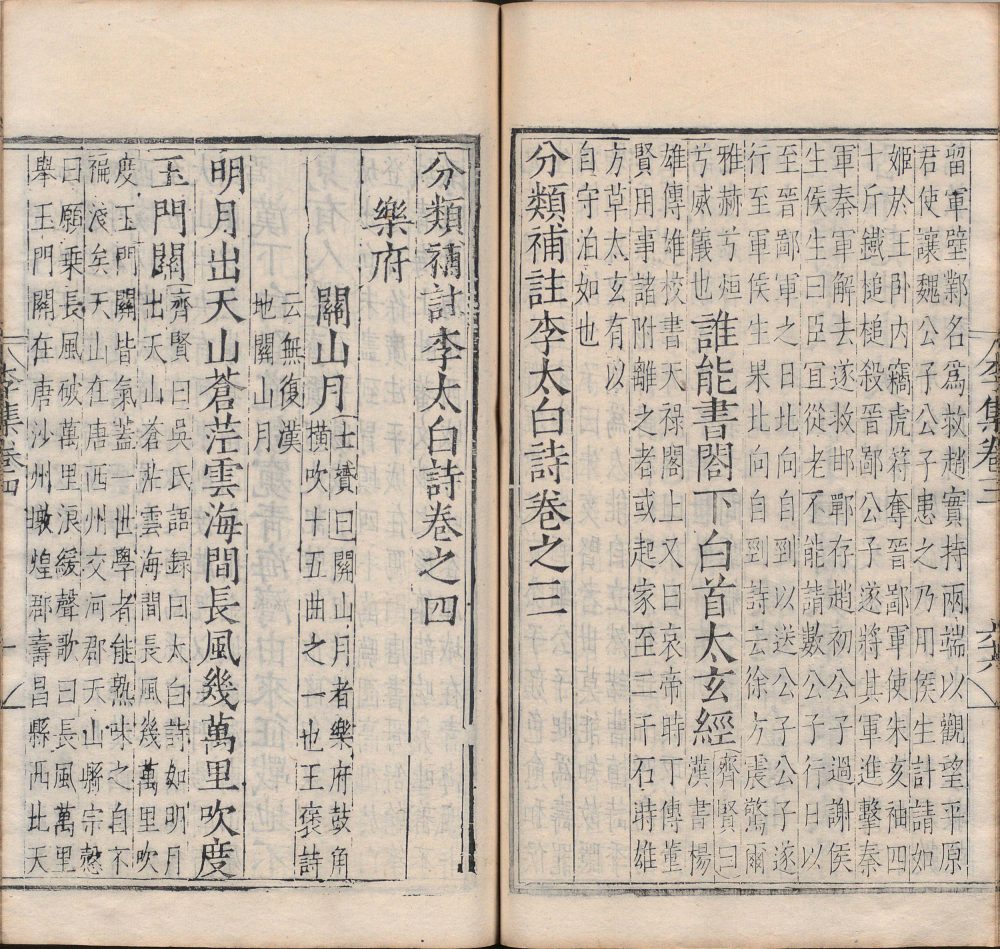 留軍壁鄴名爲救趙實持兩端以觀望平原
君使讓魏公子公子患之乃用侯生計請如
姬於王卧內竊虎符奪晉鄙軍使朱亥袖四
十斤鐵槌槌殺晉鄙公子遂將其軍進擊秦
軍秦軍解去遂救邯鄲存趙初公子過謝侯
生侯生曰臣宜從老不能請數公子行日以
至晉鄙軍之日北向自剄以送公子公子遂
行至軍侯生果北向自剄詩云徐方震驚爾
雅赫兮烜
兮威儀也
誰能書閣下白首太玄經
齊賢曰
漢書楊
雄傳雄校書天祿閣上又曰哀帝時丁傅董
賢用事諸附離之者或起家至二千石時雄
方草太玄有以
自守泊如也
分類補註李太白詩卷之三
李集卷三
分類補註李太白詩卷之四
樂府
關山月
士贇曰關山月者樂府鼓角
橫吹十五曲之一也王褒詩
云無復漢
地關山月
明月出天山蒼茫雲海間長風幾萬里吹度
玉門關
齊賢曰吳氏語録曰太白詩如明月
出天山蒼茫雲海間長風幾萬里吹
度玉門關皆氣蓋一世學者能熟味之自不
褊淺矣天山在唐西州交河郡天山縣宗慤
曰願乘長風破萬里浪緩聲歌曰長風萬里
舉玉門關在唐沙州燉煌郡壽昌縣西北天
李集卷四